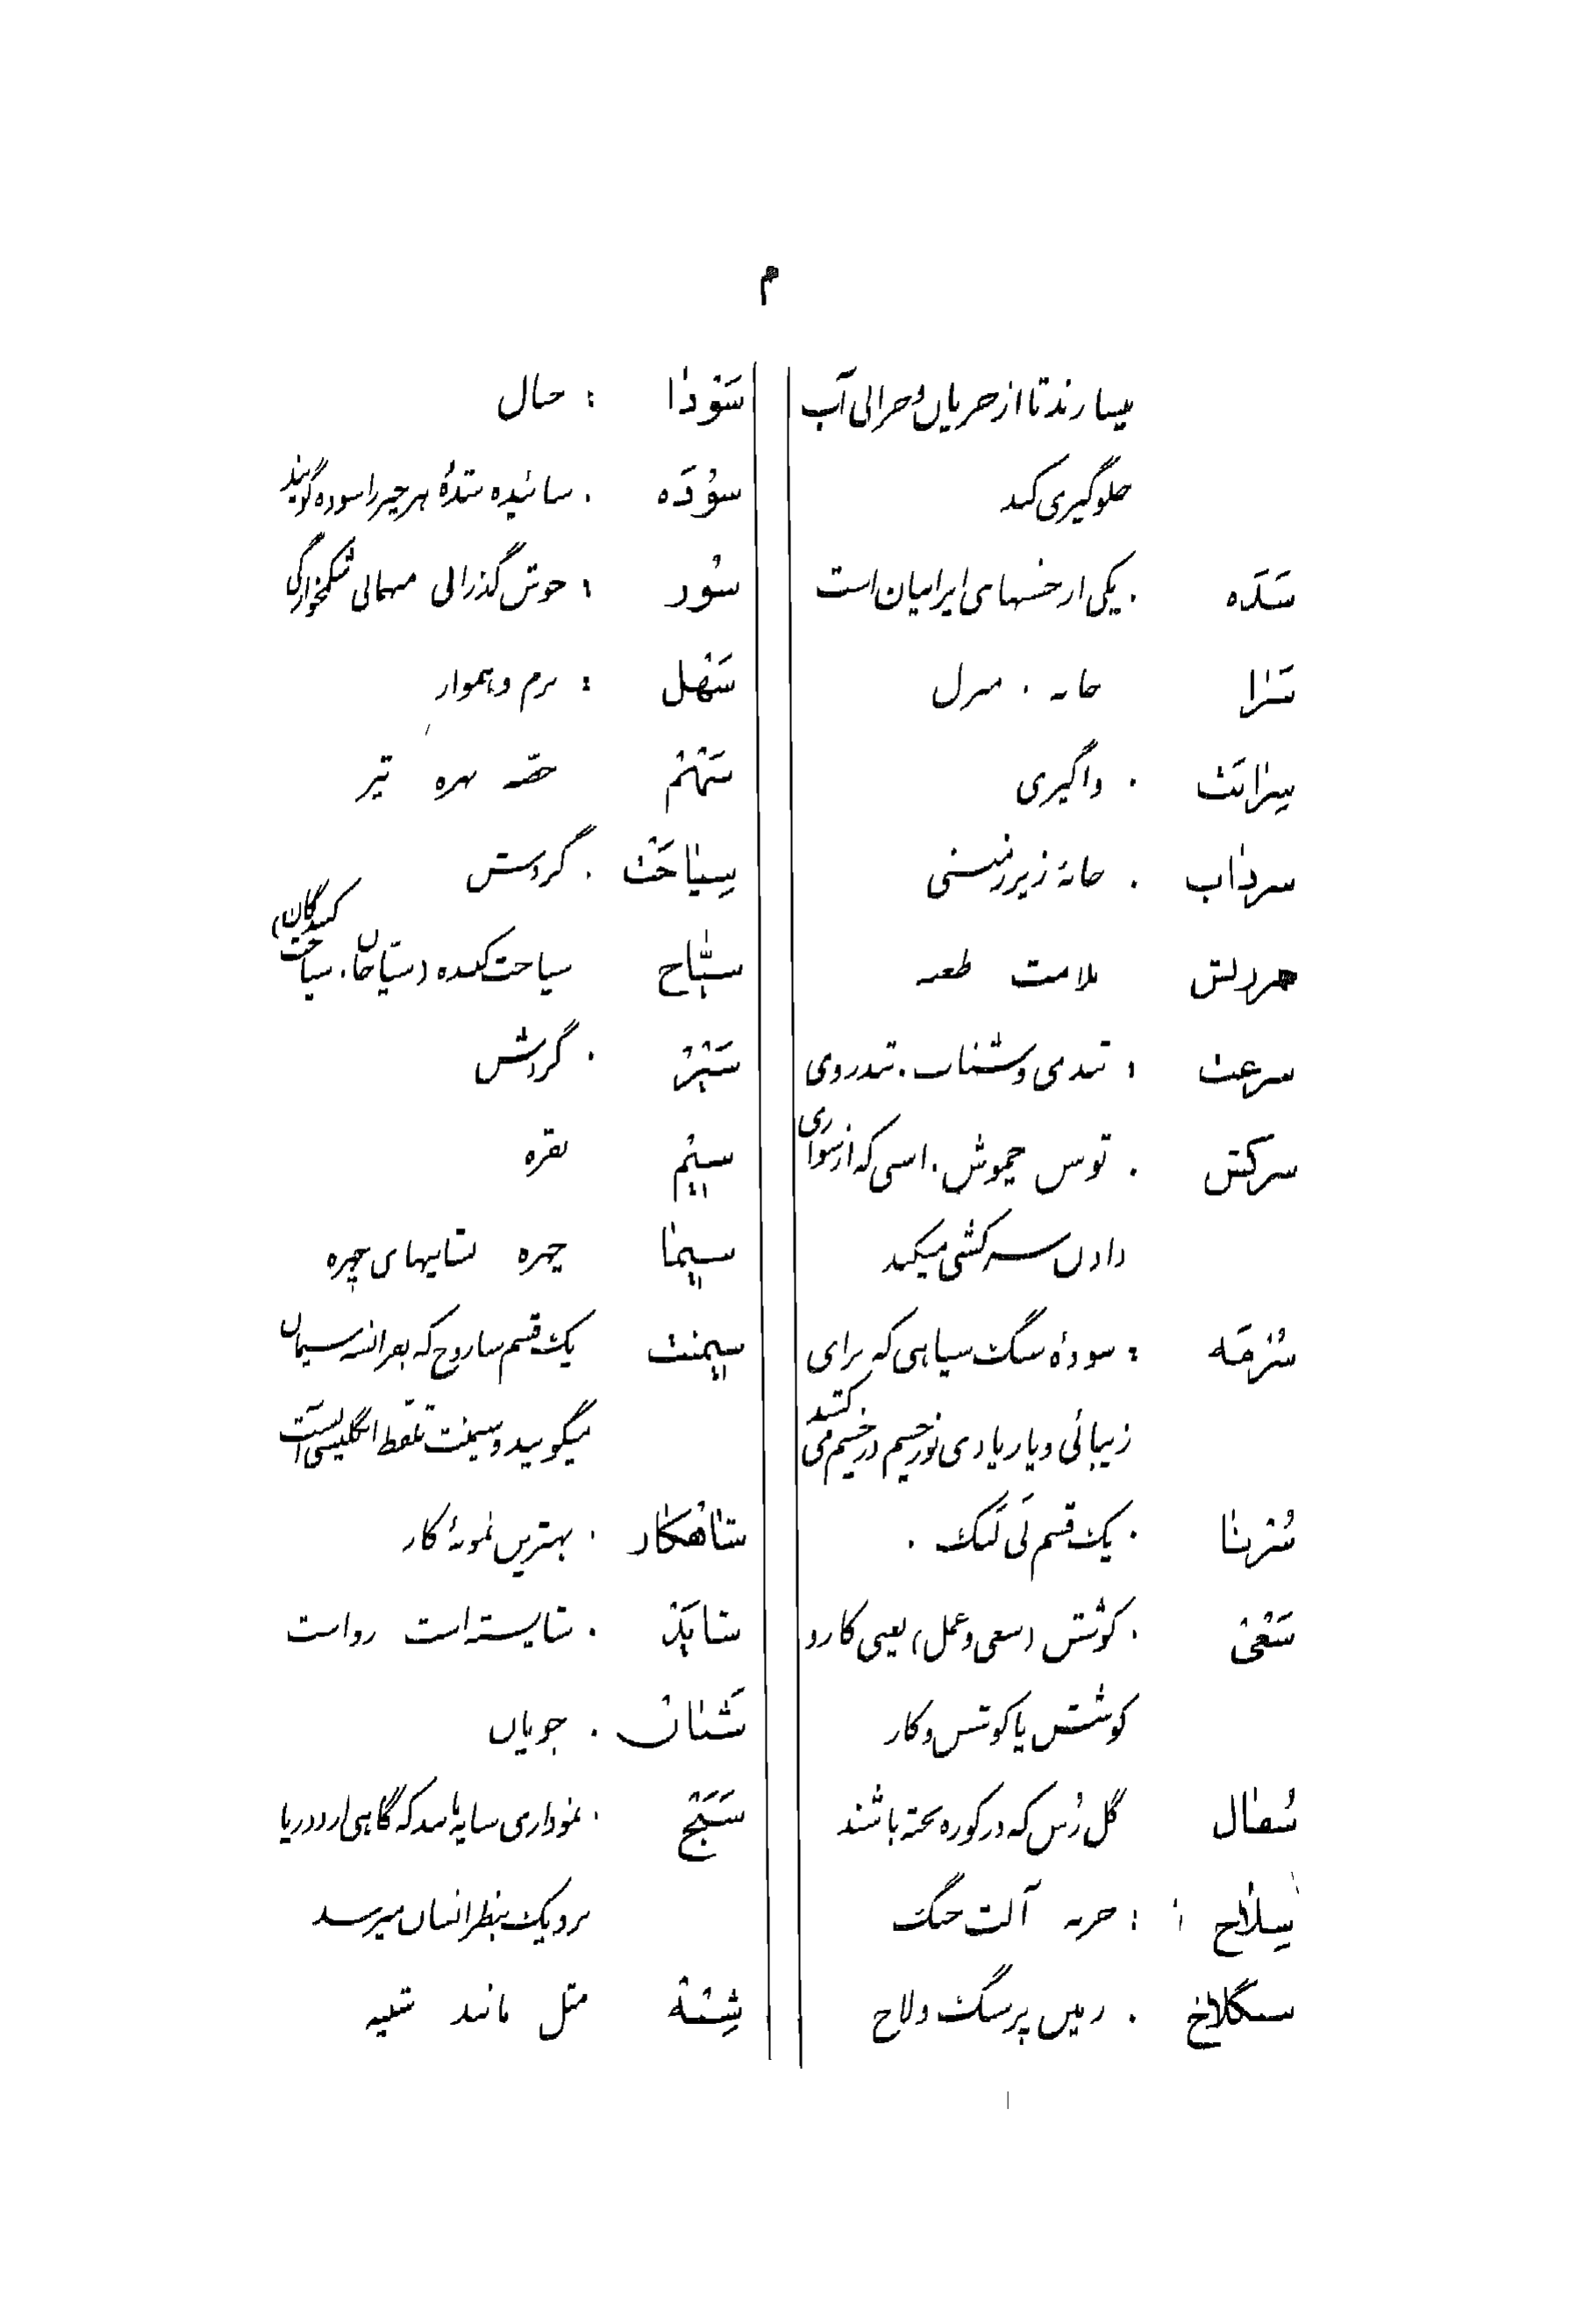 م
میسازند تا از جریان و خرابی آب
جلوگیری کند
سَدَه : یکی از جشنهای ایرانیان است
سَرا خانه . منزل
سِرایَت : واگیری
سرداب : خانهٔ زیرزمینی
سرزنش ملامت طعنه
سرعت : تندی و شتاب . تندروی
سرکش : توسن چموش . اسبی که از سواری
دادن سرکشی میکند
سُرمَه : سودهٔ سنگ سیاهی که برای
زیبائی و یا زیادی نور چشم در چشم می کشند
سُرنا : یک قسم نَی لَبک .
سَعْی : کوشش (سعی و عمل) یعنی کار و
کوشش یا کوشش و کار
سُفال گل رُس که در کوره پخته باشند
سِلاح : حربه آلت جنگ
سنگلاخ : زمین پر سنگ ولاخ
سَوْدا : خیال
سوُدَه : سائیده شدهٔ هر چیز را سوده گویند
سُور : خوش گذرانی مهمانی شکمخوارگی
سَهْل : نرم و هموار
سَهْم حصّه بهره تیر
سِیاحَت : گردش
سیّاح سیاحت کننده (سیّاحان . سیاحت کنندگان)
سَیْر : گردش
سیم نقره
سیما چهره نشانیهای چهره
سیمنت یک قسم ساروج که بفرانسه سیمان
میگویند و سیمنت تلفظ انگلیسی است
شاهکار : بهترین نمونهٔ کار
شایَد : شایسته است رواست
شتابان : جویان
شَبَح : نموداری سایه مانند که گاهی از دور یا
نزدیک بنظر انسان میرسد
شِبْه مثل مانند شبیه